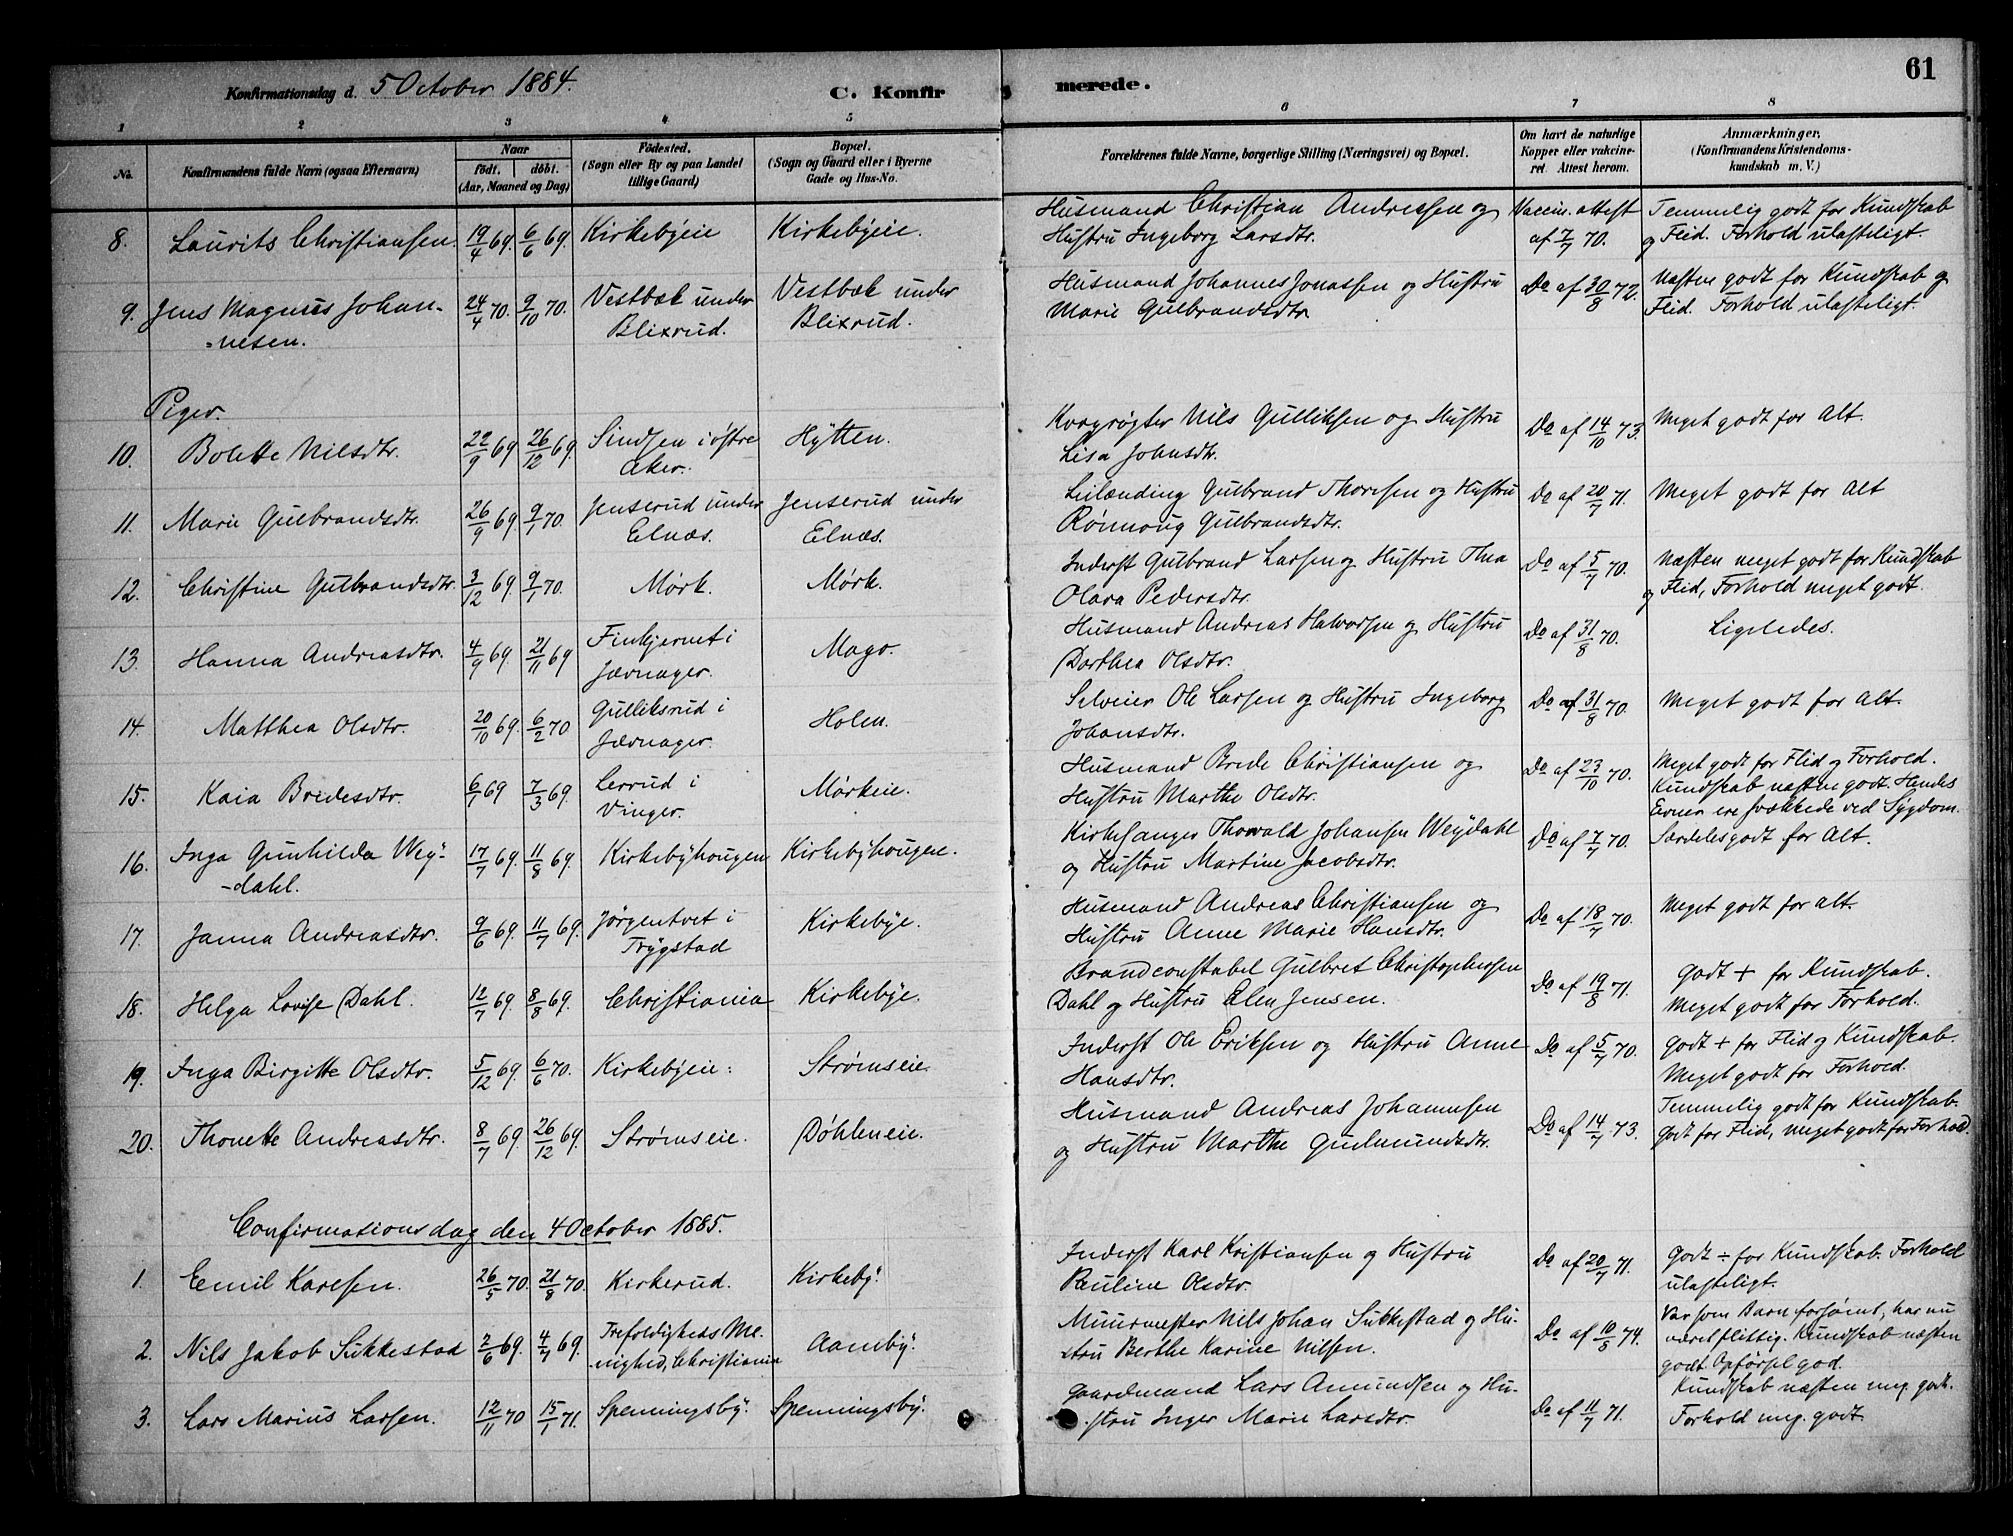 61
Konfirmationsdag d. 5 October 1884. C. Konfirmerede.
1 2 3 4 5 6 7 8
No. Konfirmandens fulde Navn (ogsaa Efternavn) Naar födt. döbt. (Aar, Maaned og Dag) Födested. (Sogn eller By og paa Landet tillige Gaard) Bopæl. (Sogn og Gaard eller i Byerne Gade og Hus-No. Forældrenes fulde Navne, borgerlige Stilling (Næringsvei) og Bopæl. Om havt de naturlige Kopper eller vakcineret. Attest herom. Anmærkninger. (Konfirmandens Kristendomskundskab m. V.)
8. Laurits Christiansen. 19/4 69. 6/6 69. Kirkebyeie Kirkebyeie. Husmand Christian Andresen og Vaccin. attest Temmelig godt for Kundskab
Hustru Ingeborg Larsdtr. af 7/7 70. og Flid. Forhold ulasteligt.
9. Jens Magnus Johan- 24/4 70. 9/10 70. Vestbæk under Vestbæk under Husmand Johannes Jonassen og Hustru Do af 30/8 72. Næsten godt for Kundskab og
-nesen. Blixrud. Blixrud. Marie Gulbrandsdtr. Flid. Forhold ulasteligt.
Piger.
10. Bolette Nilsdtr. 22/9 69 26/12 69. Sindsen i östre Hytten. Nils Gulliksen og Hustru Do af 14/10 73. Meget godt for Alt.
Aker. Lisa Johnsdtr.
11. Marie Gulbrandsdtr. 26/9 69. 9/1 70. Jenserud under Jenserud under Leilænding Gulbrand Thoresen og Hustru Do af 20/7 71. Meget godt for Alt
Elnæs. Elnæs. Rönnoug Gulbrandsdtr.
12. Christine Gulbrandsdtr. 3/12 69 9/1 70. Mørk. Mørk. Inderst Gulbrand Larsen og Hustru Thea Do af 5/7 70. Næsten meget godt for Kundskab
Olava Pedersdtr. og Flid, Forhold meget godt.
13. Hanna Andreasdtr. 4/9 69. 21/11 69 Finkjernet i Mago. Husmand Andreas Halvorsen og Hustru Do af 31/8 70. Ligeledes.
Jævnager. Dorthea Olsdtr.
14. Matthea Olsdtr. 20/10 69. 6/2 70 Gulliksrud i Holen. Selveier Ole Larsen og Hustru Ingeborg Do af 31/8 70. Meget godt for Alt.
Jævnager. Johansdtr.
15. Kaia Bredesdtr. 6/1 69 7/3 69. Lerrud i Mørkeie. Husmand Brede Christiansen og Do af 23/10 70. Meget godt for Flid og Forhold.
Vinger. Hustru Marthe Olsdtr. Kundskab næsten godt. Hendes
Evner ere svækkede ved Sygdom.
16. Inga Gunhilda Wey- 17/7 69. 11/8 69. Kirkebyhougen Kirkebyhougen. Kirkesanger Thorvald Johansen Weydahl Do af 7/7 70. Særdeles godt for Alt.
-dahl. og Hustru Martine Jacobsdtr.
17. Janna Andreasdtr. 9/6 69. 11/7 69. Jørgentvet i Kirkebye. Husmand Andreas Christiansen og Do af 18/7 70. Meget godt for Alt.
Trygstad Hustru Anne Marie Hansdtr.
18. Helga Lovise Dahl. 12/7 69. 8/8 69. Christiania Kirkebye. Brandconstabel Gulbret Christophersen Do af 19/8 71. Godt + for Kundskab.
Dahl og Hustru Elen Jensen. Meget godt for Forhold.
19. Inga Birgitte Olsdtr. 5/12 69. 6/6 70. Kirkebyeie: Strømseie. Inderst Ole Eriksen og Hustru Anne Do af 5/7 70. Godt + for Flid og Kundskab.
Hansdtr. Meget godt for Forhold.
20. Thonette Andreasdtr. 8/7 69. 26/12 69. Strømseie. Døhleneie. Husmand Andreas Johannesen Do af 14/7 73. Temmelig godt for Kundskab.
og Hustru Marthe Gudmundsdtr. Godt for Flid, meget godt for Forhold.
Confirmationsdag den 4 October 1885.
1. Emil Karlsen. 26/5 70. 21/8 70. Kirkerud. Kirkeby. Inderst Karl Kristiansen og Hustru Do af 20/7 71. Godt ÷ for Kundskab. Forhold
Pauline Olsdtr. ulasteligt.
2. Nils Jakob Sukkestad 2/6 69. 4/7 69. Trefoldigheds Me- Aamby. Muurmester Nils Johan Sukkestad og Hu- Do af 10/8 74. Var som Barn forsømt, har nu
-nighed, Christiania -stru Berthe Karine Nilsen. været flittig. Kundskab næsten
godt. Opførsel god.
3. Lars Marius Larsen. 12/11 70 15/1 71. Spenningsby. Spenningsby. Gaardmand Lars Amundsen og Hu- Do af 11/7 71. Kundskab næsten meg. godt.
-stru Inger Marie Larsdtr. Forhold meg. godt